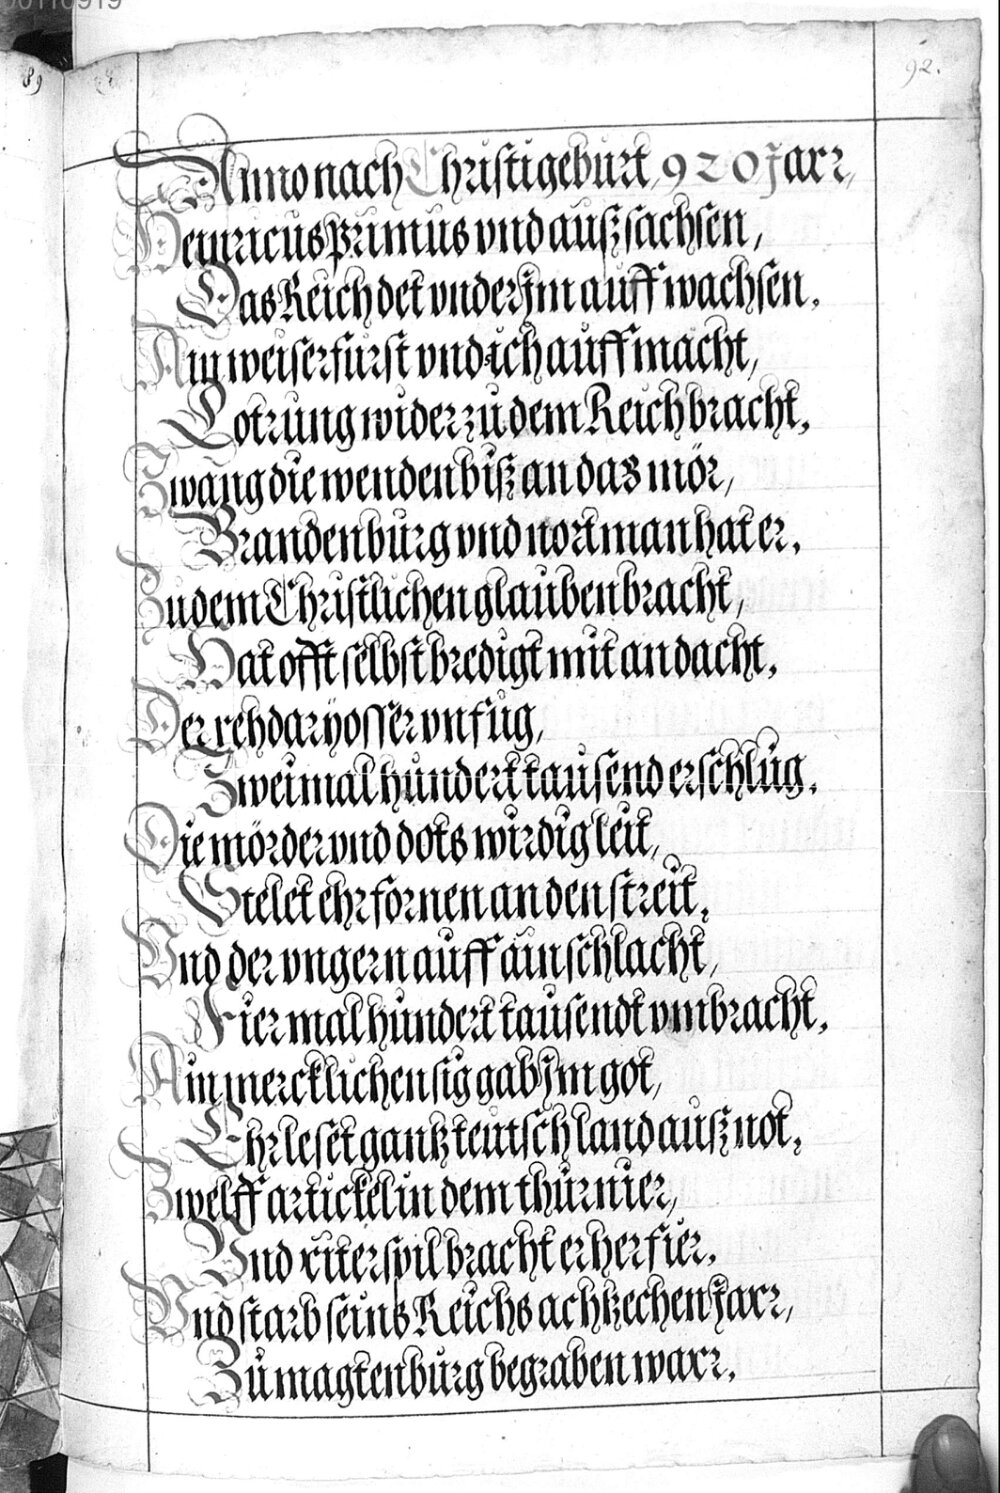 92.
Anno nach Christi geburt, 920 Jarr,
Heinricus primus vnd auß sachsen,
Das Reich det vnder jm auff wachsen.
Ain weiser fürst vnd ich auff macht,
Lotrung wider zu dem Reich bracht,
Zwang die wenden biß an das mör,
Brandenburg vnd nortman hat er.
Zu dem Christlichen glauben bracht,
Hat offt selbst bredigt mit andacht.
Der vnfug,
Zweimal hundert tausend erschlug.
Die mörder vnd dots wirdig leit,
Stelet ehr fornen an den streit.
Vnd der vngern auff äin schlacht,
Fier mal hundert tausendt vmbracht.
Ain mercklichen sig gab jm got,
Ehr leset gantz teutsch land auß not.
Zwelff artickel in dem thurnier,
Vnd riter spil bracht er herfier.
Vnd starb seins Reichs achtzechen Jarr,
Zu magtenburg begraben warr.